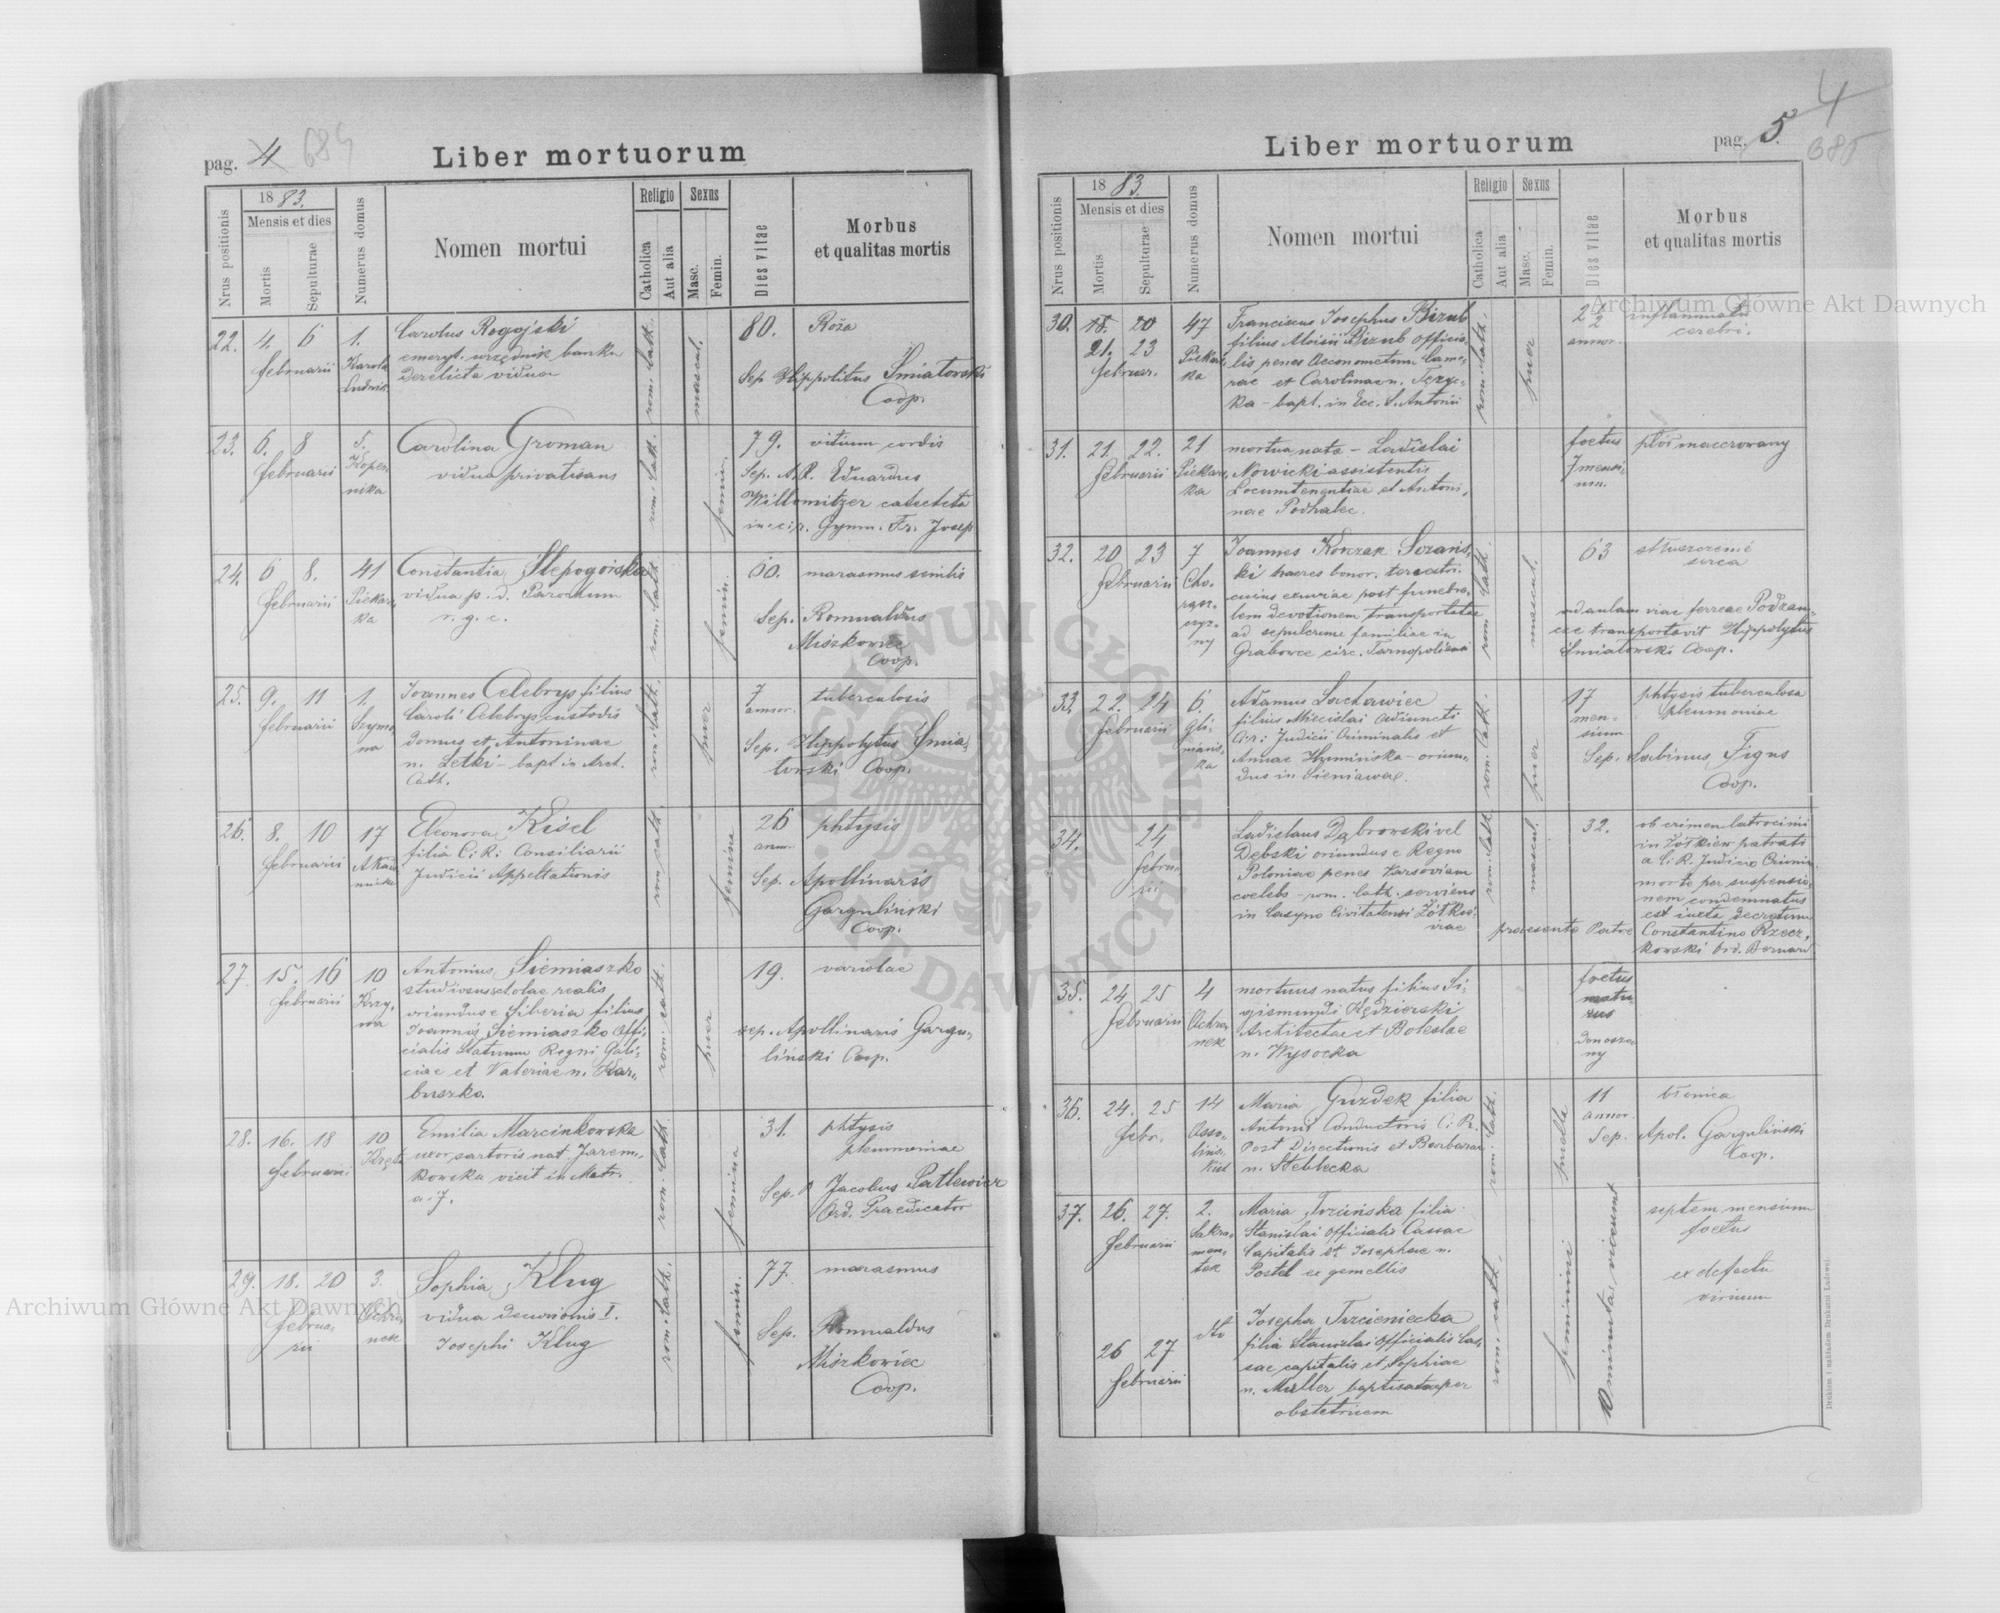 pag. 4 684
Liber mortuorum
Nrus positionis
1883.
Mensis et dies
Mortis
Sepulturae
Numerus domus
Nomen mortui
Religio
Catholica
Aut alia
Sexus
Masc.
Femin.
Dies vitae
Morbus
et qualitas mortis
22. 4. 6 februarii
1. Karola Ludwika
Carolus Rogojski
emeryt. urzędnik banku
derelicta vidua
rom. cath.
mascul.
80.
Róża
Sep. Hippolitus Śmiatowski
Coop.
23. 6. 8 februarii
5. Kopernika
Carolina Groman
vidua privatisans
rom. cath.
femin.
79. vitium cordis
Sep. A. R. Eduardus
Willomitzer catecheta
in c. r. Gymn. Fr. Josep
24. 6 8. februarii
41 Piekarska
Constantia Stepogórska
vidua p. d. Parochum
r. g. c.
rom. cath.
femin.
60. marasmus senilis
Sep. Romualdus
Miszkowiec
Coop.
25. 9. 11 februarii
1. Szymona
Joannes Celebrys filius
Caroli Celebrys custodis
domus et Antoninae
n. Letki – bapt. in Arch.
Cath.
rom. cath.
puer
7 annor.
tuberculosis
Sep. Hippolytus Śmia-
towski Coop.
26. 8. 10 februarii
17 Akademicka
Eleonora Kisel
filia C. R. Consiliarii
Judicii Appellationis
rom. cath.
femina
26 annor.
phtysis
Sep. Apollinaris
Garguliński
Coop.
27. 15. 16 februarii
10 Krzywa
Antonius Siemiaszko
studiosus scholae realis
oriundus e Siberia filius
Joannis Siemiaszko Offi-
cialis Statuum Regni Gali-
ciae et Valeriae n. Kar-
buszko.
rom. cath.
puer
19. variolae
sep. Apollinaris Gargu-
liński Coop.
28. 16. 18 februarii
10 Kręta
Emilia Marcinkowska
uxor sartoris nat. Jarem-
kowska vixit in Matr.
a. 7.
rom. cath.
femina
31. phtysis
pleumoniae
Sep. P. Jacobus Patlewicz
Ord. Praedicator
29. 18. 20 februarii
3. Ochronek
Sophia Klug
vidua decurionis I.
Josephi Klug
rom. cath.
femin.
77. marasmus
Sep. Romualdus
Miszkowiec
Coop.
Liber mortuorum
pag. 5. 4
685
Nrus positionis
1883.
Mensis et dies
Mortis
Sepulturae
Numerus domus
Nomen mortui
Religio
Catholica
Aut alia
Sexus
Masc.
Femin.
Dies vitae
Morbus
et qualitas mortis
30. 18. 20
21. 23 februar.
47 Piekarska
Franciscus Josephus Bizub
filius Moisii Bizub officia-
lis penes Oeconomatum Came-
rae et Carolinae n.
ka – bapt. in Ecc. S. Antonii
rom. cath.
puer
2 1/2 annor.
inflammatio
cerebri.
31. 21. 22. februarii
21 Piekarska
mortua nata – Ladislai
Nowicki assistentis
Locumtenentiae et Antoni-
nae Podhalec.
foetus
7 mensium.
płód macerowany
32. 20 23 februarii
7 Chorąszczyzny
Joannes Korczak Sozańs-
ki haeres bonor. terrestri.
cuius exuviae post funebra-
lem devotionem transportatae
ad sepulcrum familiae in
Grabowce circ. Tarnopoliensi
rom. cath.
mascul.
63
stłuszczenie
serca
ad aulam viae ferreae Podzam-
cze transportavit Hippolytus
Śmiatowski Coop.
33. 22. 24 februarii
6. Gliniańska
Adamus Lucharwiec
filius Miecislai adiuncti
C. r. Judicii Criminalis et
Annae – oriun-
dus in Sieniawa.
rom. cath.
puer
17 mensium
phtysis tuberculosa
pleumoniae
Sep. Sabinus Figus
Coop.
34. 24 februarii
Ladislaus Dąbrowski vel
Dębski oriundus e Regno
Poloniae penes Varsoviam
coelebs – rom. cath. serviens
in Casyno Civitatensi Żółkie-
viae
rom. cath.
mascul.
32.
ob crimen latrocinii
in Żółkiew patrati
a C. R. Judicio Crimin.
morte per suspensio-
nem condemnatus
est iuxta decretum
praesente Patre Constantino Rzecz-
kowski Ord. Bernard
35. 24 25 februarii
4 Ochronek
mortuus natus filius Si-
gismundi Kędzierski
Architectae et Boleslae
n. Wysocka
foetus
maturus
donoszony
36. 24. 25 febr.
14 Ossolińskich
Maria Guzdek filia
Antonii Conductoris C. R.
Post Directionis et Barbarae
n. Steblecka
rom. cath.
puella
11 annor.
błonica
Sep. Apol. Garguliński
Coop.
37. 26. 27. februarii
2. Sakramentek
Maria Trcińska filia
Stanislai officialis Cassae
Capitalis et Josephae n.
Postel ex gemellis
septem mensium
foetus
26 27 februarii
dto
Josepha Trzcieniecka
filia Stanislai officialis Cas-
sae capitalis et Sophiae
n. Müller baptisata per
obstetricem
rom. cath.
feminini
ex defectu
virium
Drukiem i nakładem Drukarni Ludowej
Archiwum Główne Akt Dawnych
Archiwum Główne Akt Dawnych
ARCHIWUM GŁÓWNE AKT DAWNYCH